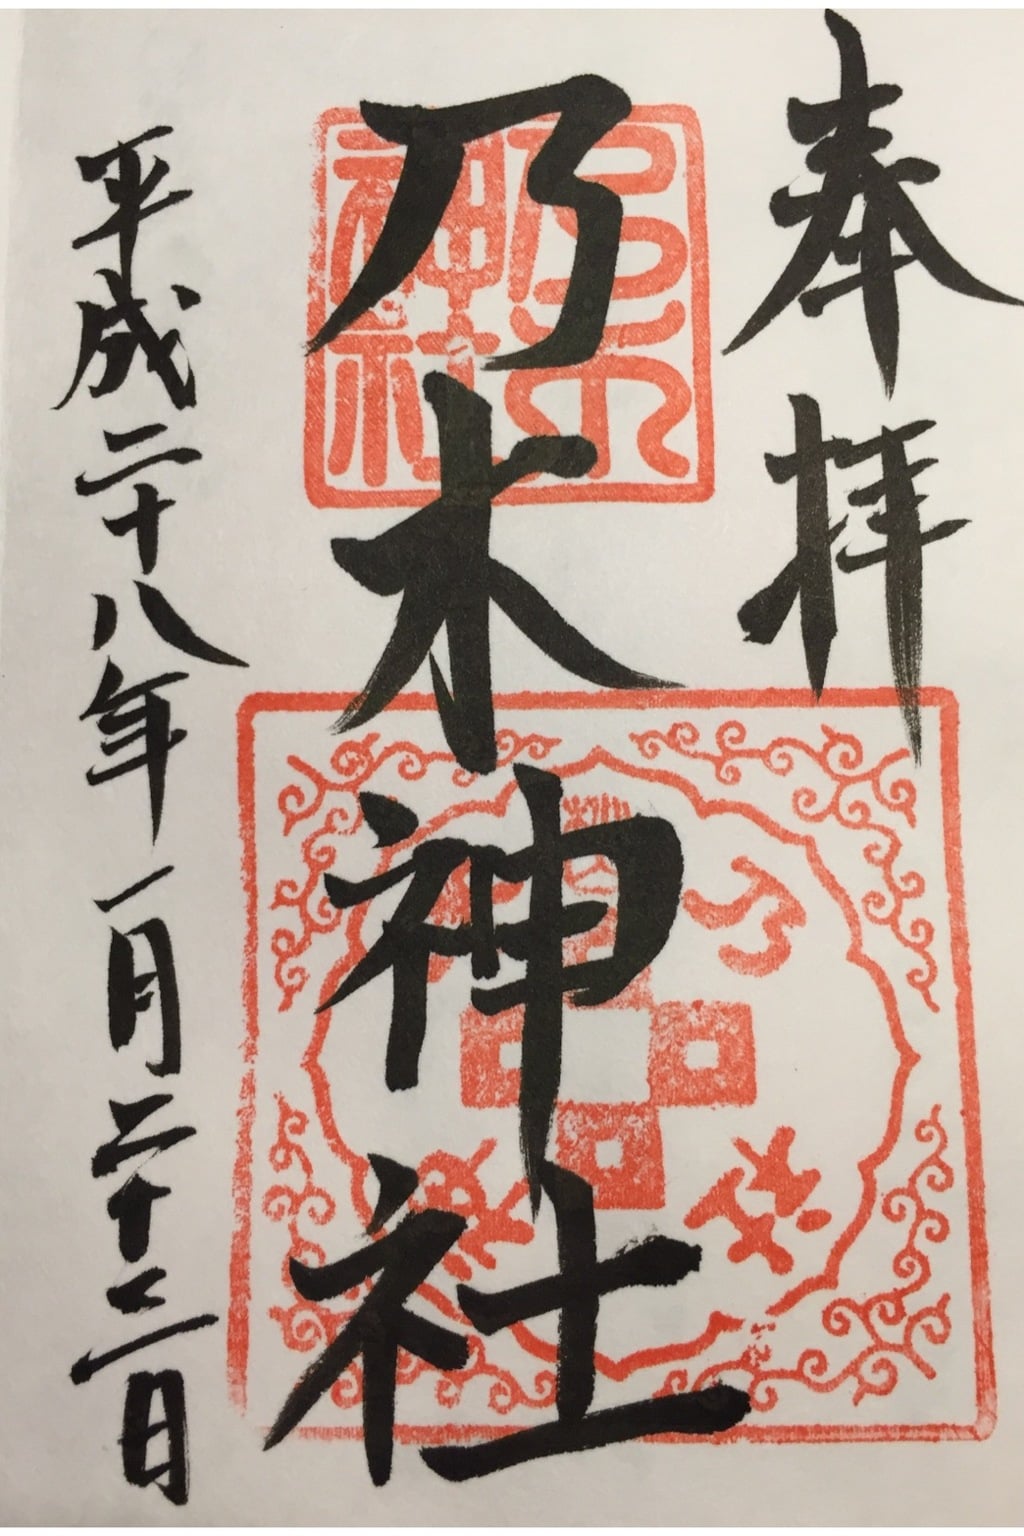 奉拝
乃木神社
平成二十八年一月二十三日
乃木神社